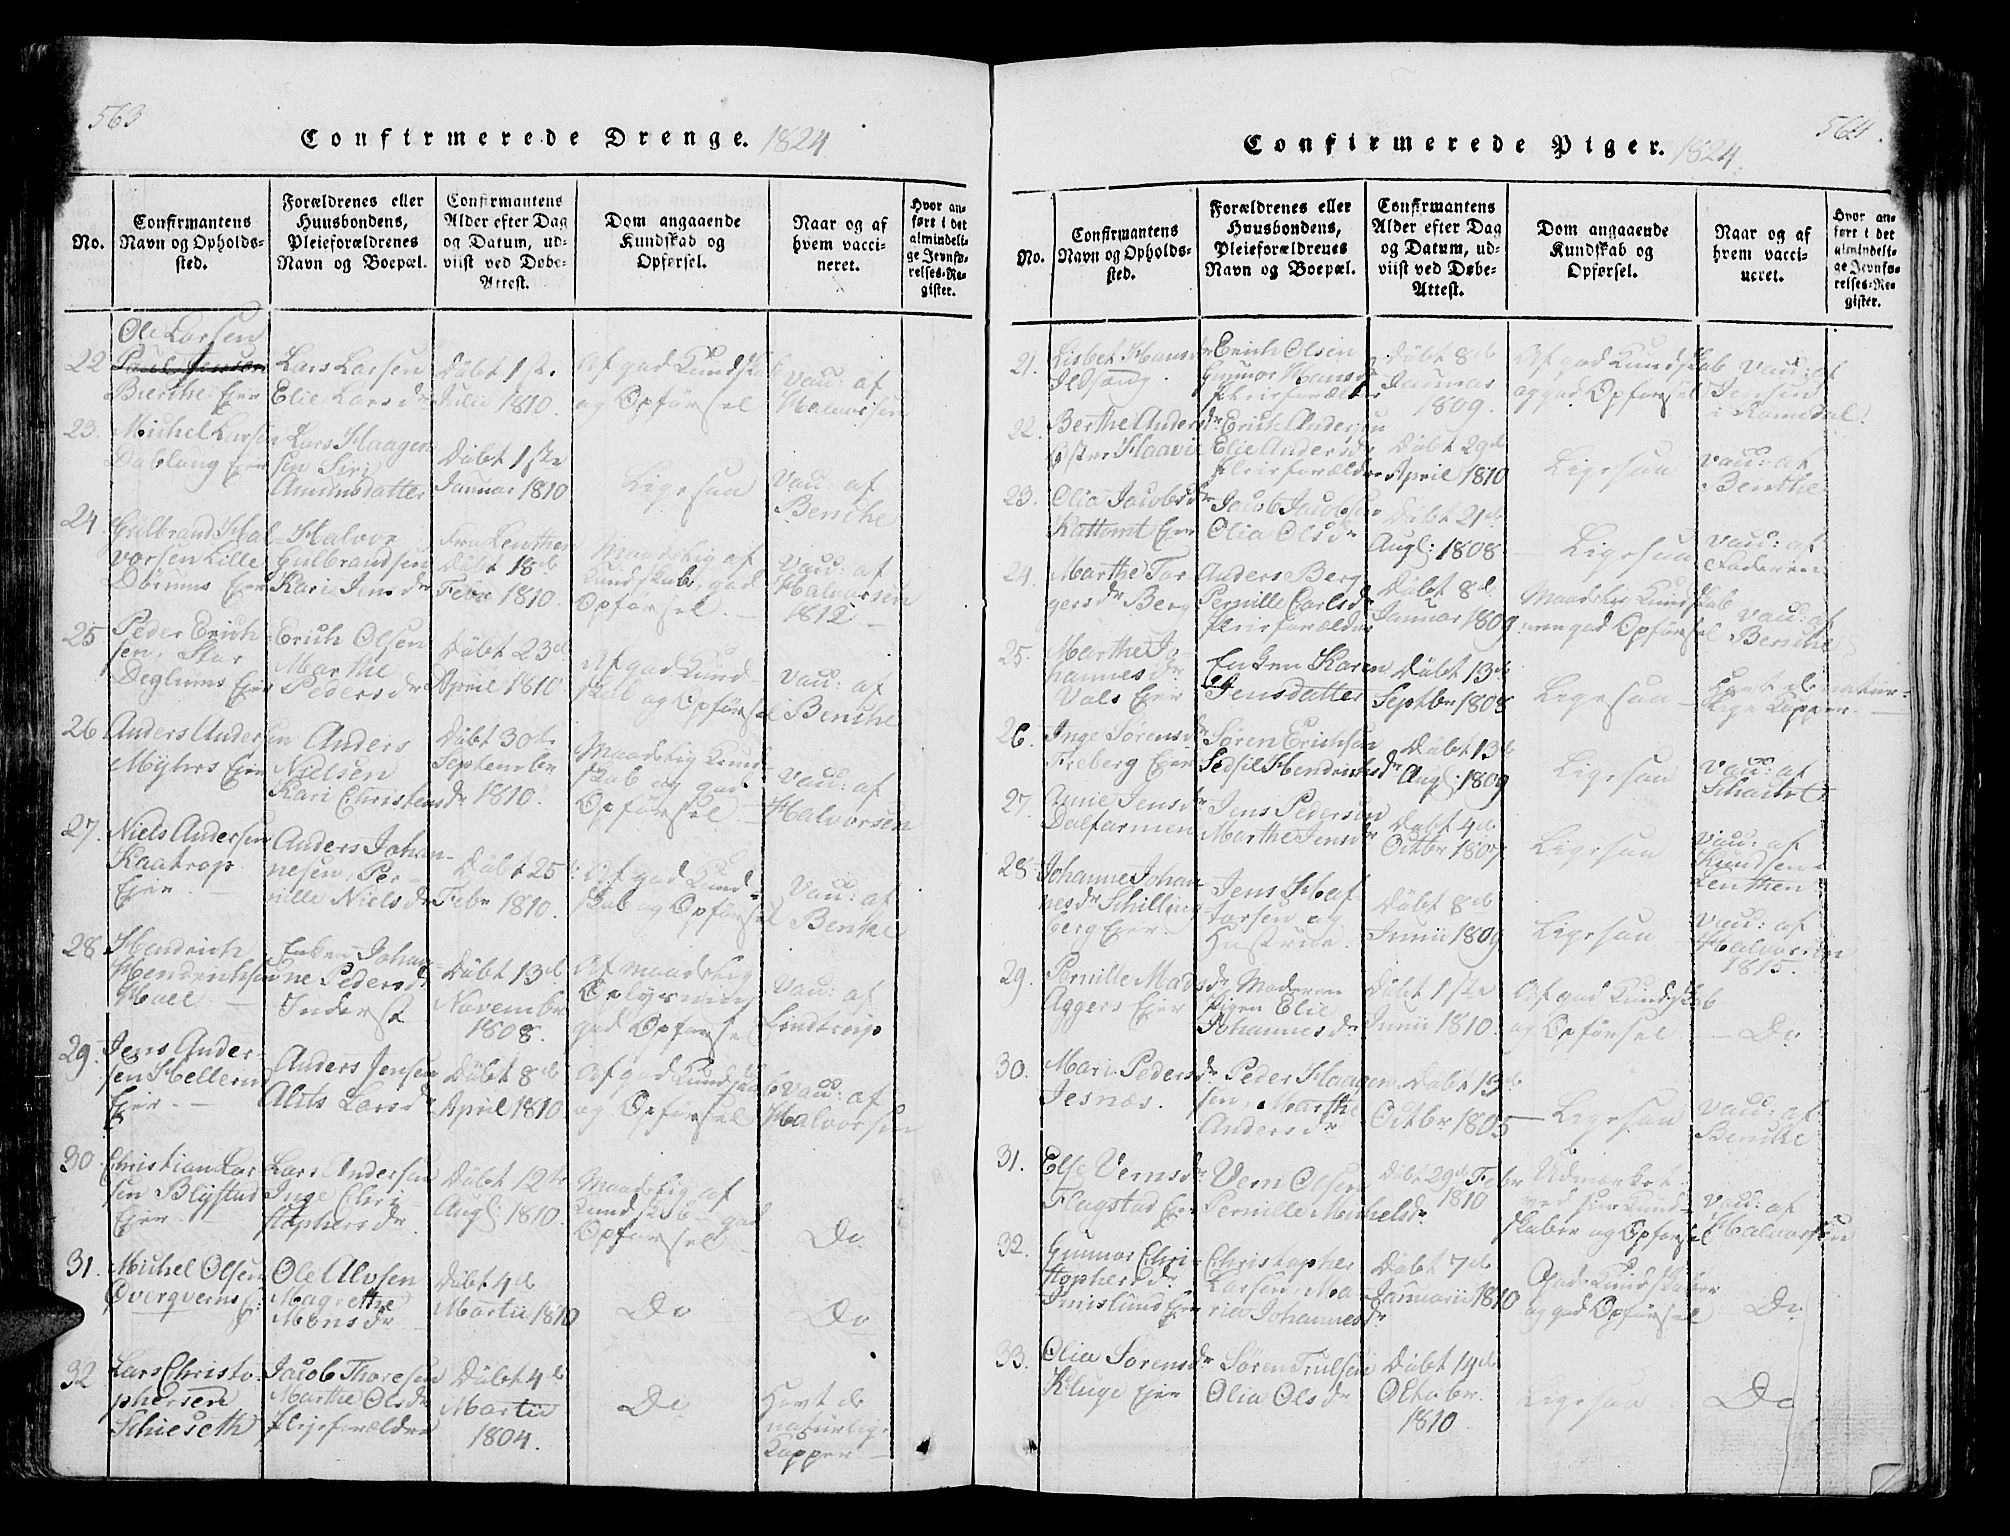 563
Confirmerede Drenge. 1824
No.
Confirmantens
Navn og Opholds-
sted.
Forældrenes eller
Huusbondens,
Pleieforældrenes
Navn og Boepæl.
Confirmantens
Alder efter Dag
og Datum, ud-
viist ved Døbe-
Attest.
Dom angaaende
Kundskab og
Opførsel.
Naar og af
hvem vacci-
neret.
Hvor an-
ført i det
almindeli-
ge Jevnfø-
relses-Re-
gister.
22
Ole Larsen
Bierche Eier
Lars Larsen
Elie Larsdr
Døbt 1ste
Julii 1810.
Af god Kundskab
og Opførsel
Vacc: af
Halvorsen
23.
Michel Larsen
Dablaug Eier
Lars Haagen-
sen Siri
Amunsdatter
Døbt 1ste
Januar 1810
Ligesaa
Vacc: af
Benche
24
Gulbrand Hal-
vorsen Lille
Dørums Eier
Halvor
Gulbrandsen
Kari Jensdr
fra Leuthen
Døbt 18d
Febr 1810.
Maadelig af
Kundskab, god
Opførsel. —
Vacc: af
Halvorsen
1812 —
25
Peder Erich-
sen, Stor
Deglums Eier
Erich Olsen
Marthe
Pedersdr
Døbt 23d
April 1810
Af god Kund-
skab og Opførsel
Vacc: af
Benche
26
Anders Andersen
Myhrs Eier
Anders
Nielsen
Kari Christensdr
Døbt 30te
Septembr
1810.
Maadelig Kund-
skab og god
Opførsel —
Vacc: af
Halvorsen
27.
Niels Andersen
Kaatrop
Eier —
Anders Johan-
nesen, Per-
nille Nielsdr
Døbt 25
Febr 1810.
Af god Kund-
skab og Opførsel
Vacc: af
Benche
28
Hendrich
Hendrichsen
Hoel —
Enken Johan-
ne Pedersdr
Inderst
Døbt 13d
Novembr
1808.
Af maadelig
Oplysning
god Opførsel
Vacc: af
Lindtorp
29.
Jens Ander-
sen Hellerud
Eier —
Anders Jensen
Alits Larsdr
Døbt 8d
April 1810
Af god Kundskab
og Opførsel
Vacc: af
Halvorsen
30
Christian Lar-
sen Blystad
Eier
Lars Andersen
Inge Chri-
stophersdr
Døbt 12te
Augl: 1810.
Maadelig af
Kundskab god
Opførsel —
Do
31.
Michel Olsen
Overqverns E:
Ole Alvsen
Magrethe
Monsdr
Døbt 4d
Martii 1810
Do
Do
32
Lars Christo-
phersen
Schieseth
Jacob Thoresen
Marthe Olsdr
Plejeforældre
Døbt 4d
Martii
1804.
Do
Havt de
naturlige
Kopper —
564.
Confirmerede Piger. 1824.
No.
Confirmantens
Navn og Opholds-
sted.
Forældrenes eller
Huusbondens,
Pleieforældrenes
Navn og Boepæl.
Confirmantens
Alder efter Dag
og Datum, ud-
viist ved Døbe-
Attest.
Dom angaaende
Kundskab og
Opførsel.
Naar og af
hvem vacci-
neret.
Hvor an-
ført i det
almindeli-
ge Jevnfø-
relses-Re-
gister.
21.
Lisbet Hansdr
Ildsaug.
Erich Olsen
Gunnor Hansdr
Pleieforældre
Døbt 8d
Januar
1809.
Af god Kundskab
og god Opførsel
Vacc: af
Jensen
i Romedal.
22.
Berthe Andersdr
Øster Haavie
Erich Andersen
Elie Andersdr
Pleieforældre
Døbt 29d
April 1810
Ligesaa
Vacc: af
Benche
23.
Olia Jacobsdr
Kattomt Eier
Jacob Jacobsen
Olia Olsdr
Døbt 21d
Augl: 1808
— Ligesaa
Vacc: af
Faderen
24.
Marthe Tor-
gersdr Berg
Anders Berg
Pernille Carlsdr
Pleieforældre
Døbt 8d
Januar 1809
Maadelig Kundskab
men god Opførsel
Vacc: af
Benche
25.
Marthe Jo-
hannesdr
Vols Eier
Enken Karen
Jensdatter
Døbt 13d
Septbr 1808
Ligesaa —
Havt de natur-
lige Kopper —
26.
Inge Sørensdr
Freberg Eier
Søren Erichsen
Sedsil Hendrichsdr
Døbt 13d
Augl: 1809
Ligesaa
Vacc: af
Schacht
27.
Anne Jensdr
Dalfarmen
Jens Pedersen
Marthe Jensdr
Døbt 4d
Octbr 1807
Ligesaa
Vacc: af
Knudsen
Leuthen
28.
Johanne Johan-
nesdr Schilling-
berg Eier
Jens Haf-
torsen og
Hustrue.
Døbt 8d
Junii 1809
Ligesaa
Vacc: af
Halvorsen
1815.
29.
Pernille Madsdr
Aggers Eier
Moderen
Pigen Elie
Johannesdr
Døbt 1ste
Junii 1810.
Af god Kundskab
og Opførsel
— Do
30.
Mari Pedersdr
Jesnæs.
Peder Haagen-
sen, Marthe
Andersdr
Døbt 13d
Octbr 1805
— Ligesaa
Vacc: af
Benche
31.
Else Vemsdr
Flagstad Eier
Vem Olsen
Pernille Michelsdr
Døbt 29d Febr
1810
Udmærket
ved sine Kund-
skaber og Opførsel
Vacc: af
Halvorsen
32.
Gunnor Chri-
stophersdr
Imislund Eier
Christopher
Larsen, Ma-
rie Johannesdr
Døbt 7d
Januarii 1810
Gode Kundskaber
og god Opførsel
Do
33.
Olia Sørensdr
Kluge Eier
Søren Trulsen
Olia Olsdr
Døbt 14d
Octobr
1810
Ligesaa
Do